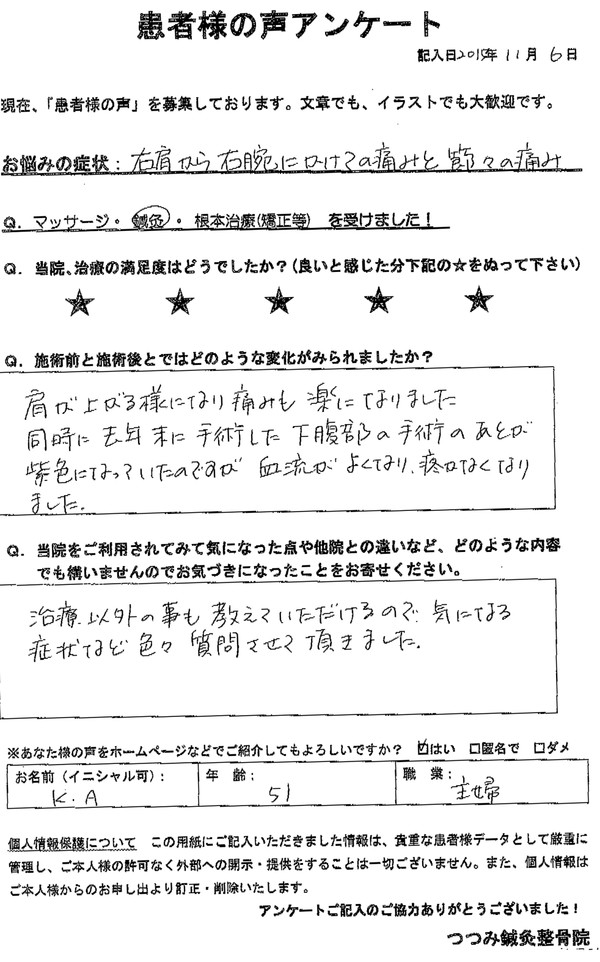 患者様の声アンケート
記入日2015年11月6日
現在、「患者様の声」を募集しております。文章でも、イラストでも大歓迎です。
お悩みの症状：右肩から右腕にかけての痛みと節々の痛み
Q．マッサージ・鍼灸・根本治療(矯正等) を受けました！
Q．当院、治療の満足度はどうでしたか？（良いと感じた分下記の☆をぬって下さい）
★ ★ ★ ★ ★
Q．施術前と施術後とではどのような変化がみられましたか？
肩が上がる様になり痛みも楽になりました
同時に去年末に手術した下腹部の手術のあとが
紫色になっていたのですが 血流がよくなり、疼かなくなり
ました.
Q．当院をご利用されてみて気になった点や他院との違いなど、どのような内容
でも構いませんのでお気づきになったことをお寄せください。
治療以外の事も教えていただけるので 気になる
症状など色々質問させて頂きました.
※あなた様の声をホームページなどでご紹介してもよろしいですか？ ☑はい □匿名で □ダメ
お名前（イニシャル可）： 年 齢： 職 業：
K.A 51 主婦
個人情報保護について この用紙にご記入いただきました情報は、貴重な患者様データとして厳重に
管理し、ご本人様の許可なく外部への開示・提供をすることは一切ございません。また、個人情報は
ご本人様からのお申し出より訂正・削除いたします。
アンケートご記入のご協力ありがとうございました！
つつみ鍼灸整骨院